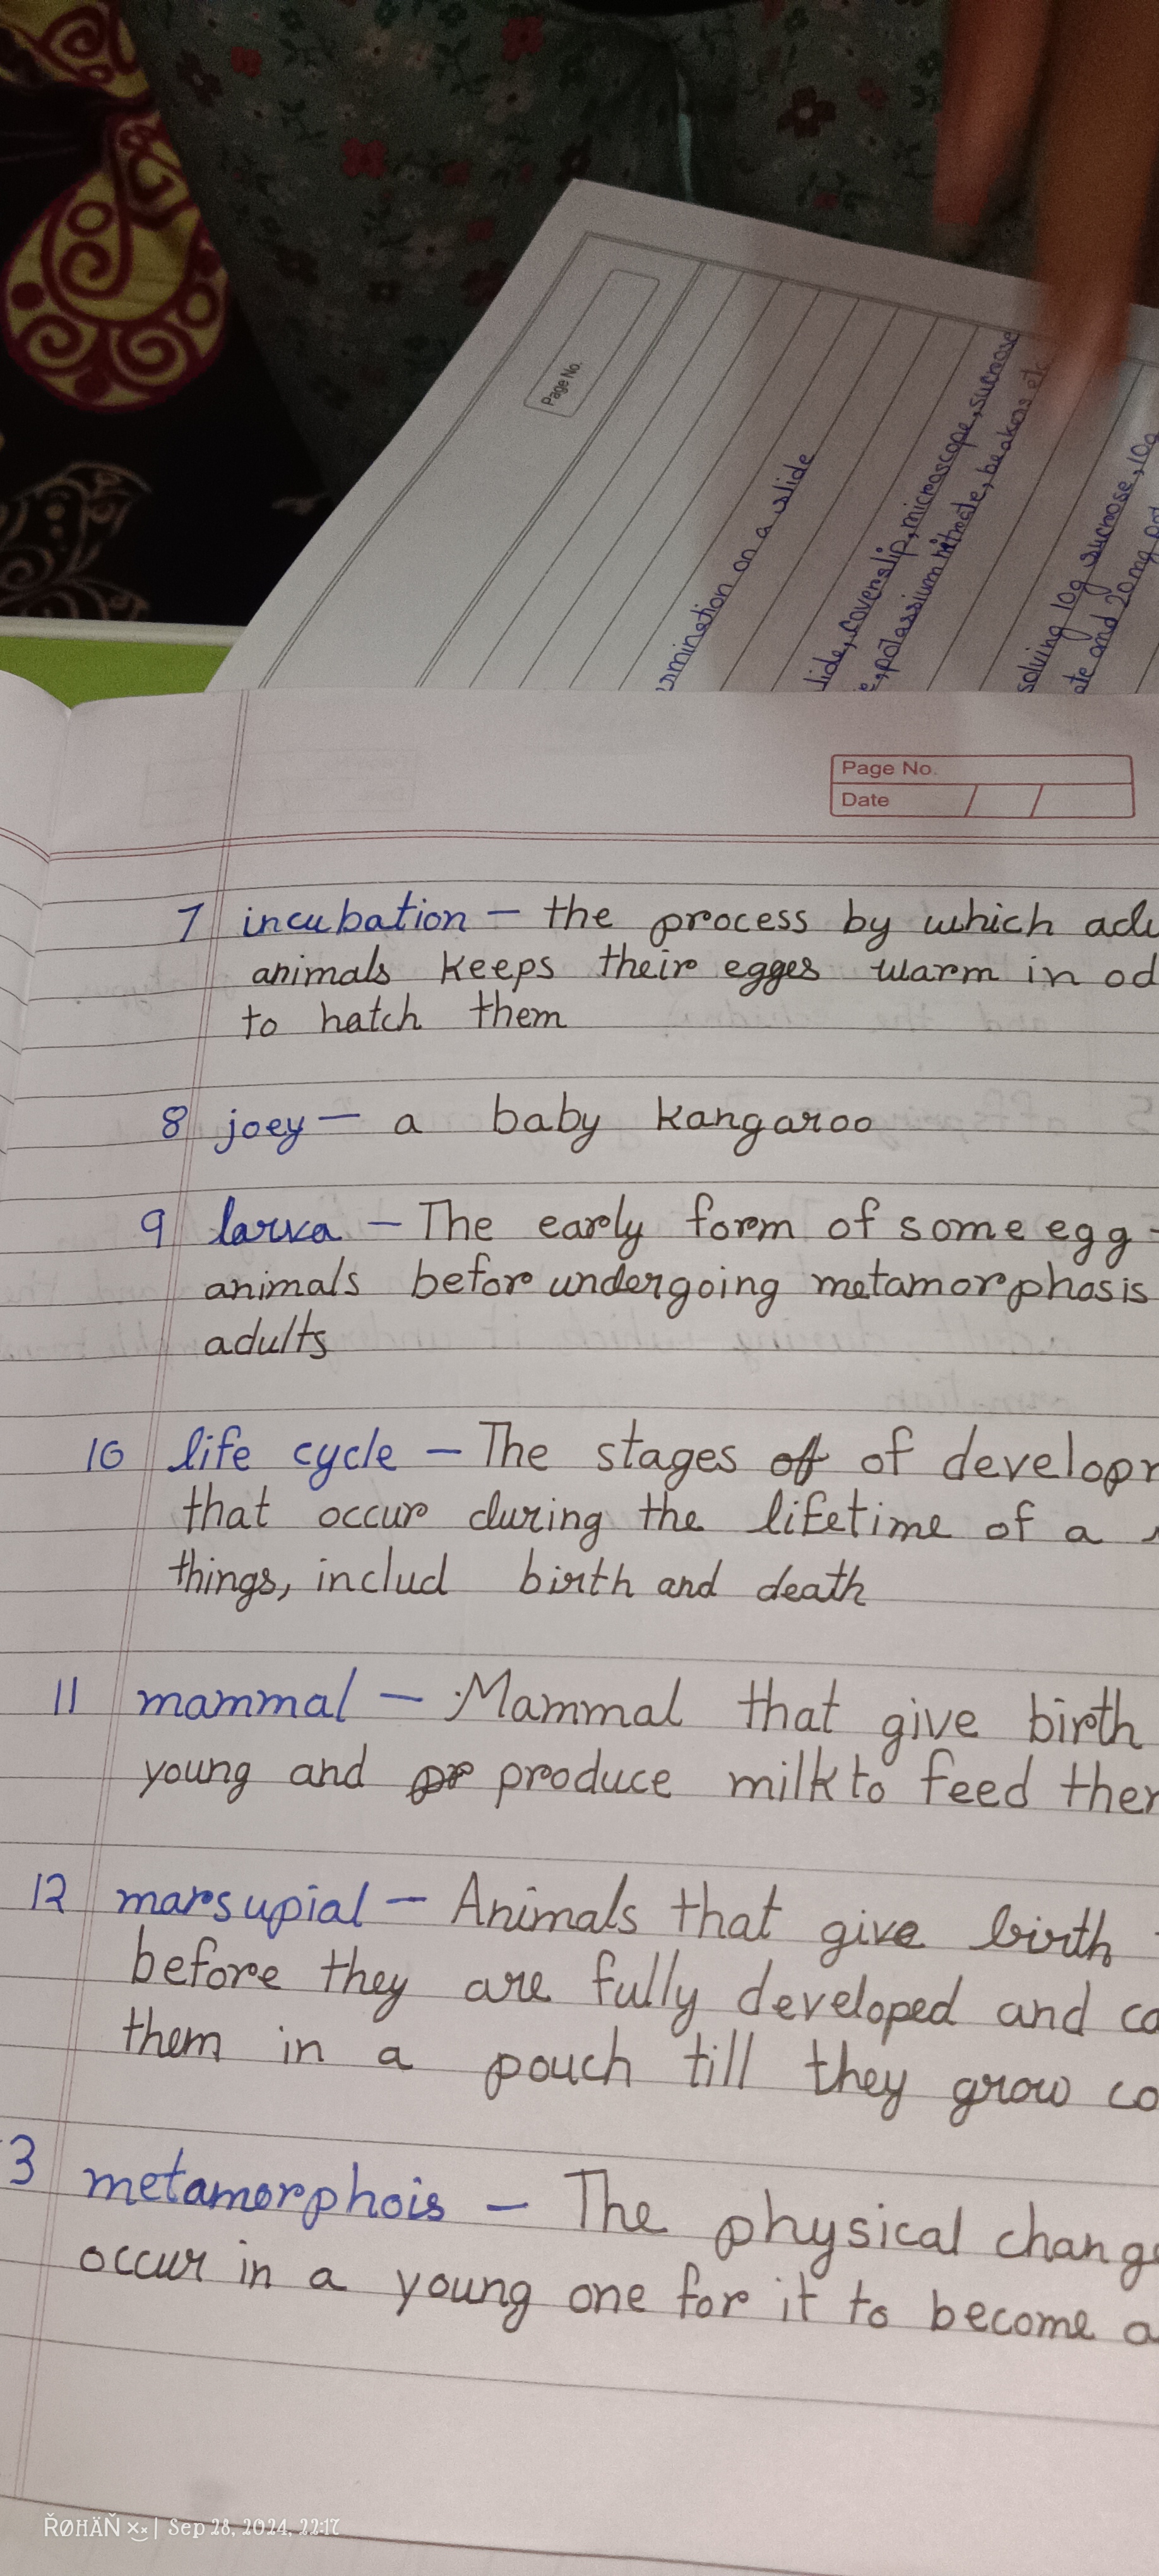 Page No.
amination on a slide
lide, coverslip, microscope, sucrose
potassium nitrate, beakers etc
solving 10g sucrose, 10g
ate and 20mg
Page No.
Date / /
7 incubation – the process by which adu
animals keeps their egges warm in od
to hatch them
8 joey – a baby kangaroo
9 larva – The early form of some egg -
animals before undergoing metamorphosis
adults
10 life cycle – The stages of of develop
that occur during the lifetime of a
things, includ birth and death
11 mammal – Mammal that give birth
young and pr produce milk to feed ther
12 marsupial – Animals that give birth
before they are fully developed and ca
them in a pouch till they grow co
3 metamorphois – The physical change
occur in a young one for it to become a
ŘØHÄŇ ×͜× | Sep 28, 2024, 22:17